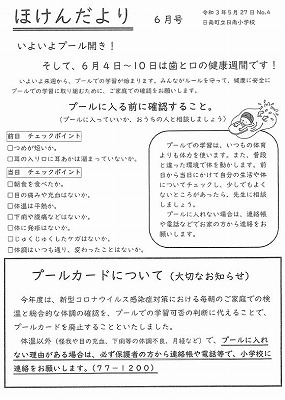 ほけんだより
6月号
令和3年5月27日 No.4
日南町立日南小学校
いよいよプール開き！
そして、6月4日～10日は歯と口の健康週間です！
いよいよ来週から、プールでの学習が始まります。みんながルールを守って、健康に安全に
プールでの学習に取り組むために、ご家庭での確認をお願いします。
プールに入る前に確認すること。
(プールに入っていいか、おうちの人と相談しましょう)
前日 チェックポイント
□つめが短いか。
□耳の入り口に耳あかは溜まっていないか。
当日 チェックポイント
□朝食を食べたか。
□目の痛みや充血はないか。
□体温は平熱か。
□下痢や腹痛などはないか。
□体に発疹はないか。
□じゅくじゅくしたケガはないか。
□体調はいつも通り、変わったことはないか。
プールでの学習は、いつもの体育
よりも体力を使います。また、普段
と違った環境で体を動かします。前
日から当日にかけて自分の生活や体
についてチェックし、少しでもよく
ないところがあったら、先生に相談
しましょう。
プールに入れない場合は、連絡帳
や電話などでお家の方から連絡をお
願いします。
プールカードについて（大切なお知らせ）
今年度は、新型コロナウイルス感染症対策における毎朝のご家庭での検
温と総合的な体調の確認を、プールでの学習可否の判断に代えることで、
プールカードを廃止することといたしました。
体温以外（怪我や目の充血、下痢等の体調不良、月経など）で、プールに入れ
ない理由がある場合は、必ず保護者の方から連絡帳や電話等で、小学校に
連絡をお願いします。(77-1200)